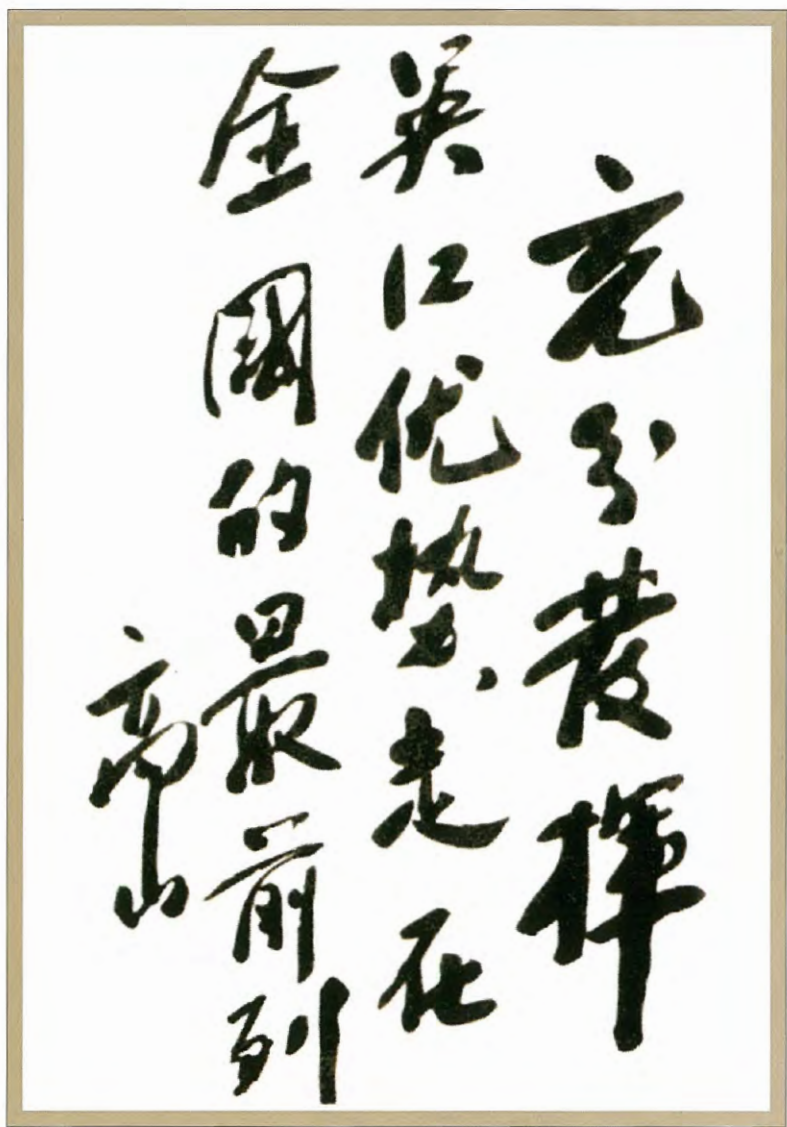 充分發揮
吴江优势、走在
全國的最前列
高山